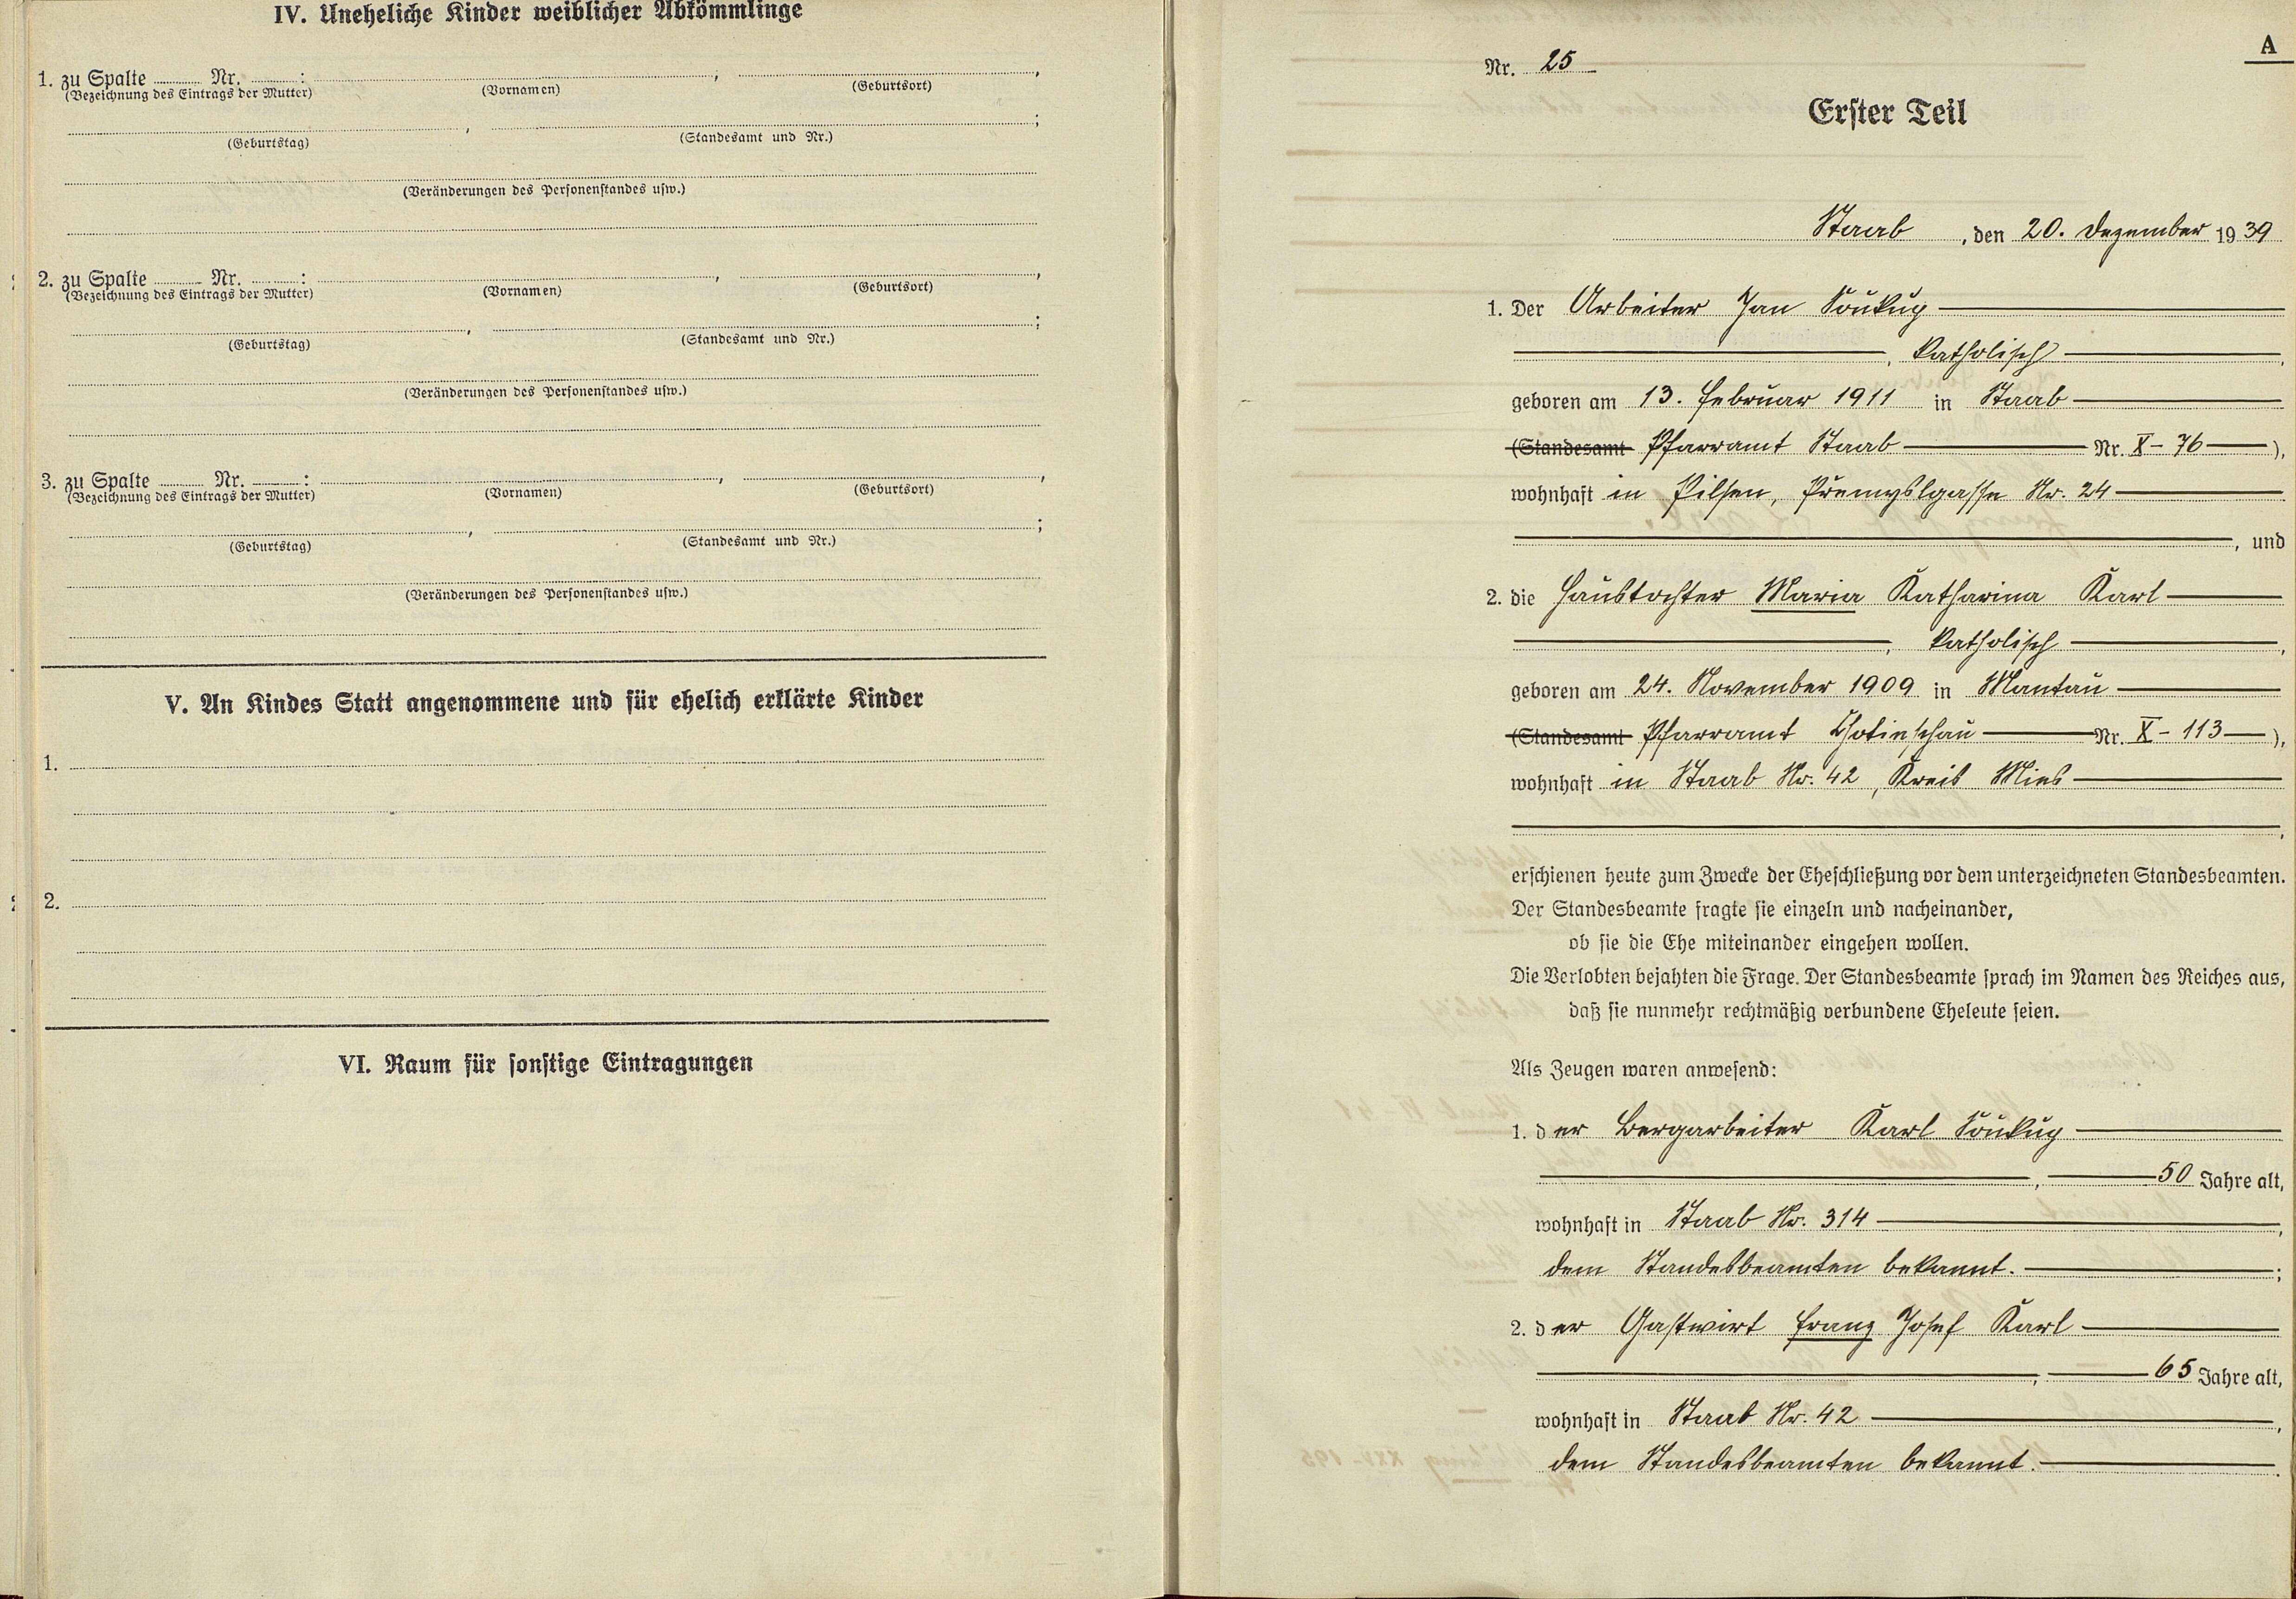 IV. Uneheliche Kinder weiblicher Abkömmlinge
1. zu Spalte Nr. : , ,
(Bezeichnung des Eintrags der Mutter) (Vornamen) (Geburtsort)
, ;
(Geburtstag) (Standesamt und Nr.)
(Veränderungen des Personenstandes usw.)
2. zu Spalte Nr. : , ,
(Bezeichnung des Eintrags der Mutter) (Vornamen) (Geburtsort)
, ;
(Geburtstag) (Standesamt und Nr.)
(Veränderungen des Personenstandes usw.)
3. zu Spalte Nr. : , ,
(Bezeichnung des Eintrags der Mutter) (Vornamen) (Geburtsort)
, ;
(Geburtstag) (Standesamt und Nr.)
(Veränderungen des Personenstandes usw.)
V. An Kindes Statt angenommene und für ehelich erklärte Kinder
1.
2.
VI. Raum für sonstige Eintragungen
A
Nr. 25
Erster Teil
Staab, den 20. Dezember 1939
1. Der Arbeiter Jan Soukup
, katholisch,
geboren am 13. Februar 1911 in Staab
(Standesamt Pfarramt Staab Nr. X - 76),
wohnhaft in Pilsen, Přemyslgasse Nr. 24
, und
2. die Haustochter Maria Katharina Karl
, katholisch,
geboren am 24. November 1909 in Mantau
(Standesamt Pfarramt Chotieschau Nr. X - 113),
wohnhaft in Staab Nr. 42, Kreis Mies
,
erschienen heute zum Zwecke der Eheschließung vor dem unterzeichneten Standesbeamten.
Der Standesbeamte fragte sie einzeln und nacheinander,
ob sie die Ehe miteinander eingehen wollen.
Die Verlobten bejahten die Frage. Der Standesbeamte sprach im Namen des Reiches aus,
daß sie nunmehr rechtmäßig verbundene Eheleute seien.
Als Zeugen waren anwesend:
1. der Bergarbeiter Karl Soukup
, 50 Jahre alt,
wohnhaft in Staab Nr. 314,
dem Standesbeamten bekannt.;
2. der Gastwirt Franz Josef Karl
, 65 Jahre alt,
wohnhaft in Staab Nr. 42,
dem Standesbeamten bekannt.